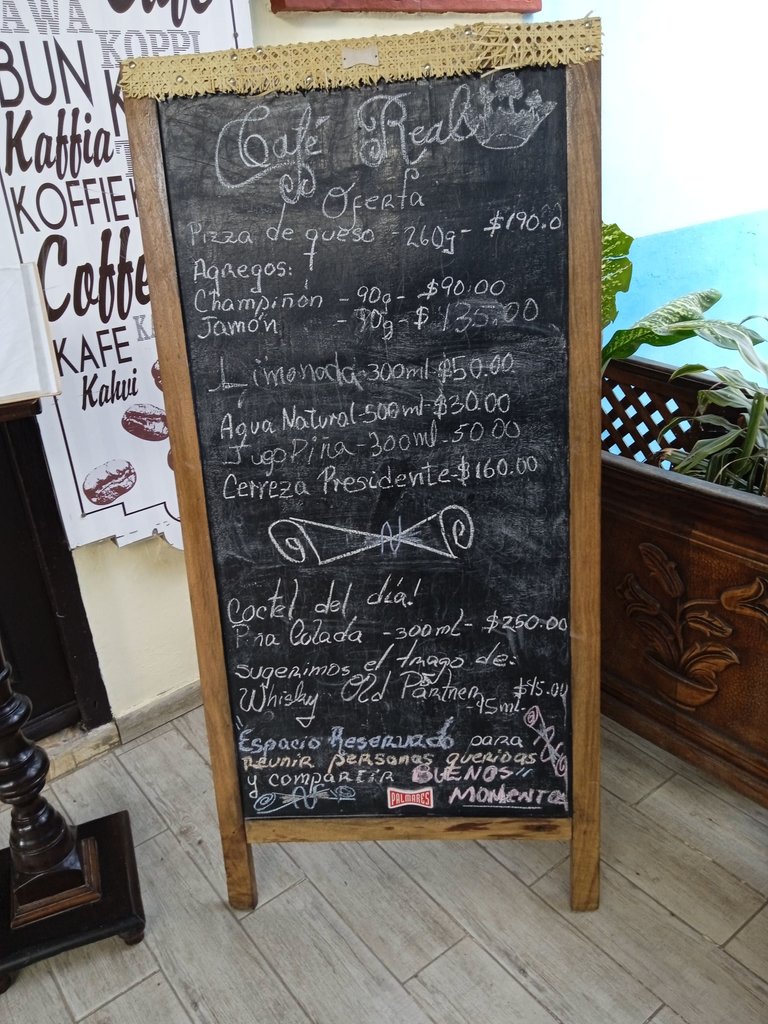 AWA
Café
KOPPI
BUN
K
Kaffia
KOFFIE
Coffe
KAFE
KA
Kahvi
Café Real
Oferta
Pizza de queso - 260g - $190.0
Agregos:
Champiñón - 90g - $90.00
Jamón - 90g - $135.00
Limonada - 300ml - $50.00
Agua Natural - 500ml - $30.00
Jugo Piña - 300ml - 50.00
Cerveza Presidente - $160.00
Coctel del día!
Pina Colada - 300ml - $250.00
Sugerimos el trago de:
Whisky Old Partner $45.00
- 45ml -
"Espacio Reservado para
reunir personas queridas
y compartir BUENOS"
PALMARES MOMENTO